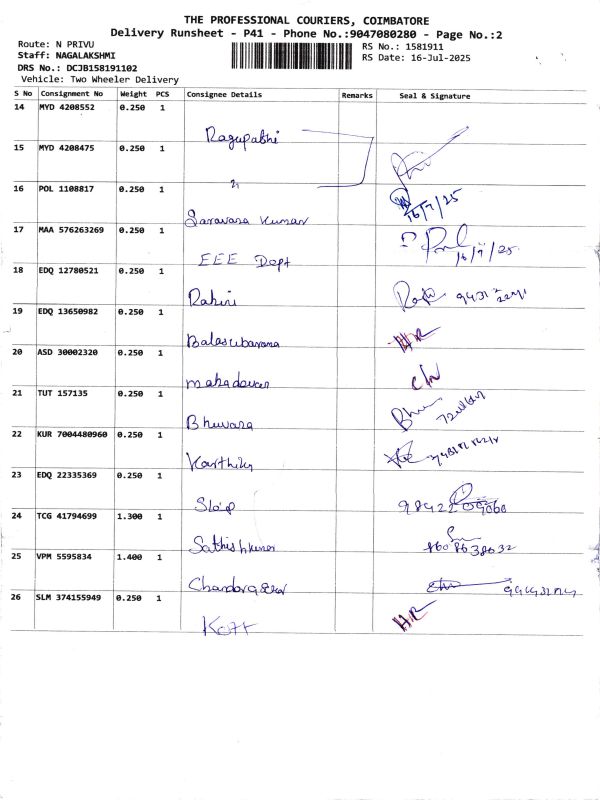 THE PROFESSIONAL COURIERS, COIMBATORE
Delivery Runsheet - P41 - Phone No.:9047080280 - Page No.:2
Route: N PRIVU
Staff: NAGALAKSHMI
DRS No.: DCJB158191102
Vehicle: Two Wheeler Delivery
RS No.: 1581911
RS Date: 16-Jul-2025
S No Consignment No Weight PCS Consignee Details Remarks Seal & Signature
14 MYD 4208552 0.250 1
Ragupathi
15 MYD 4208475 0.250 1
16 POL 1108817 0.250 1
16/7/25
Saravana Kumar
17 MAA 576263269 0.250 1
EEE Dept 16/7/25
18 EDQ 12780521 0.250 1
Rahini
19 EDQ 13650982 0.250 1
Balasubarama HR
20 ASD 30002320 0.250 1
mahadevan
21 TUT 157135 0.250 1
Bhuvana
22 KUR 7004480960 0.250 1
Karthik
23 EDQ 22335369 0.250 1
24 TCG 41794699 1.300 1
Sathishkumar
25 VPM 5595834 1.400 1
26 SLM 374155949 0.250 1
HR